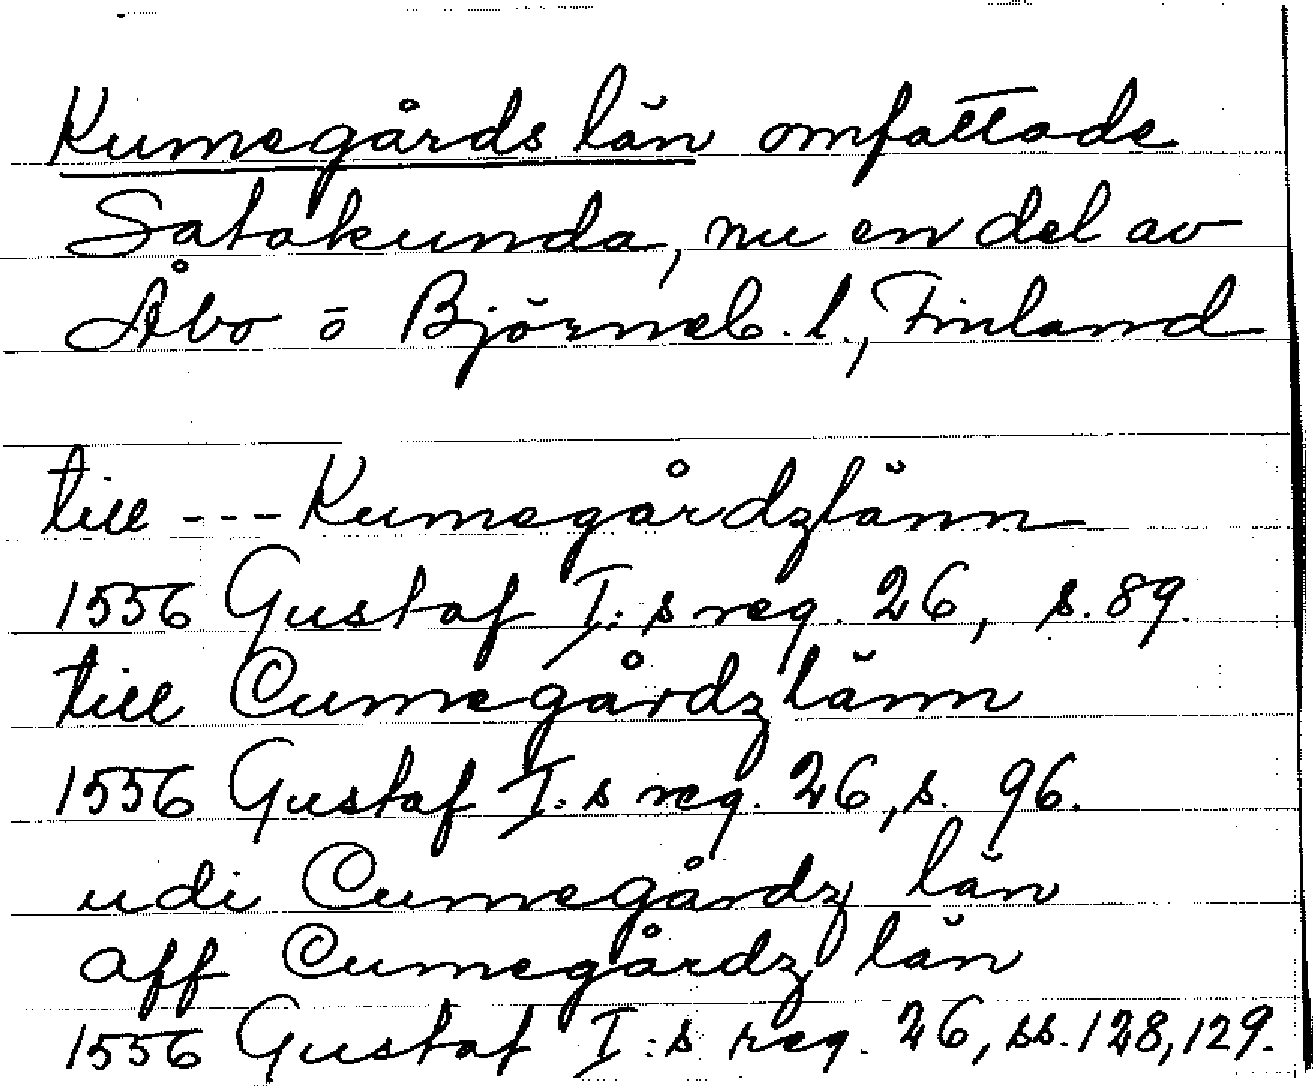 Kumegårds län omfattade
Satakunda, nu en del av
Åbo o Björneb. l., Finland
till --- Kumegårdzlänn
1556 Gustaf I:s reg. 26, s. 89.
till Cumegårdz länn
1556 Gustaf I:s reg. 26, s. 96.
udi Cumegårdz län
aff Cumegårdz län
1556 Gustaf I:s reg. 26, ss. 128, 129.